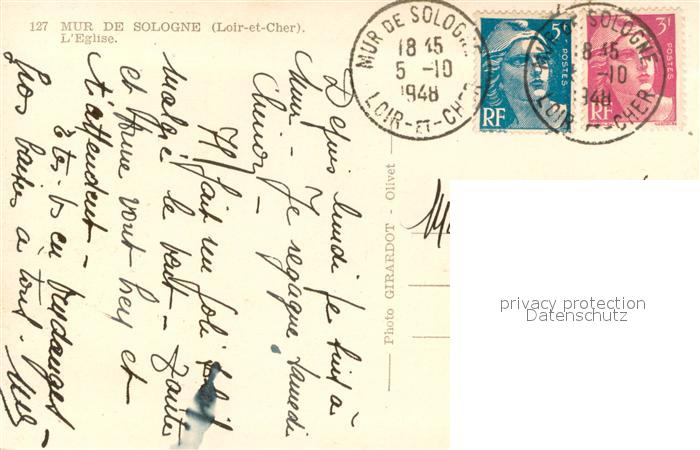 127 MUR DE SOLOGNE (Loir-et-Cher).
L'Eglise.
MUR DE SOLOGNE
18 45
5 -10
1948
LOIR-ET-CHER
5f
POSTES
RF
MUR DE SOLOGNE
18 45
5 -10
1948
LOIR-ET-CHER
3f
POSTES
RF
Photo GIRARDOT - Olivet
privacy protection
Datenschutz
Depuis lundi je suis à
Mur - Je regagne Samedi
Chinon -
Il fait un joli soleil
malgré le vent -
et vont bien et
t'attendent -
Etes-vs en vendanges
Gros baisers à tous -